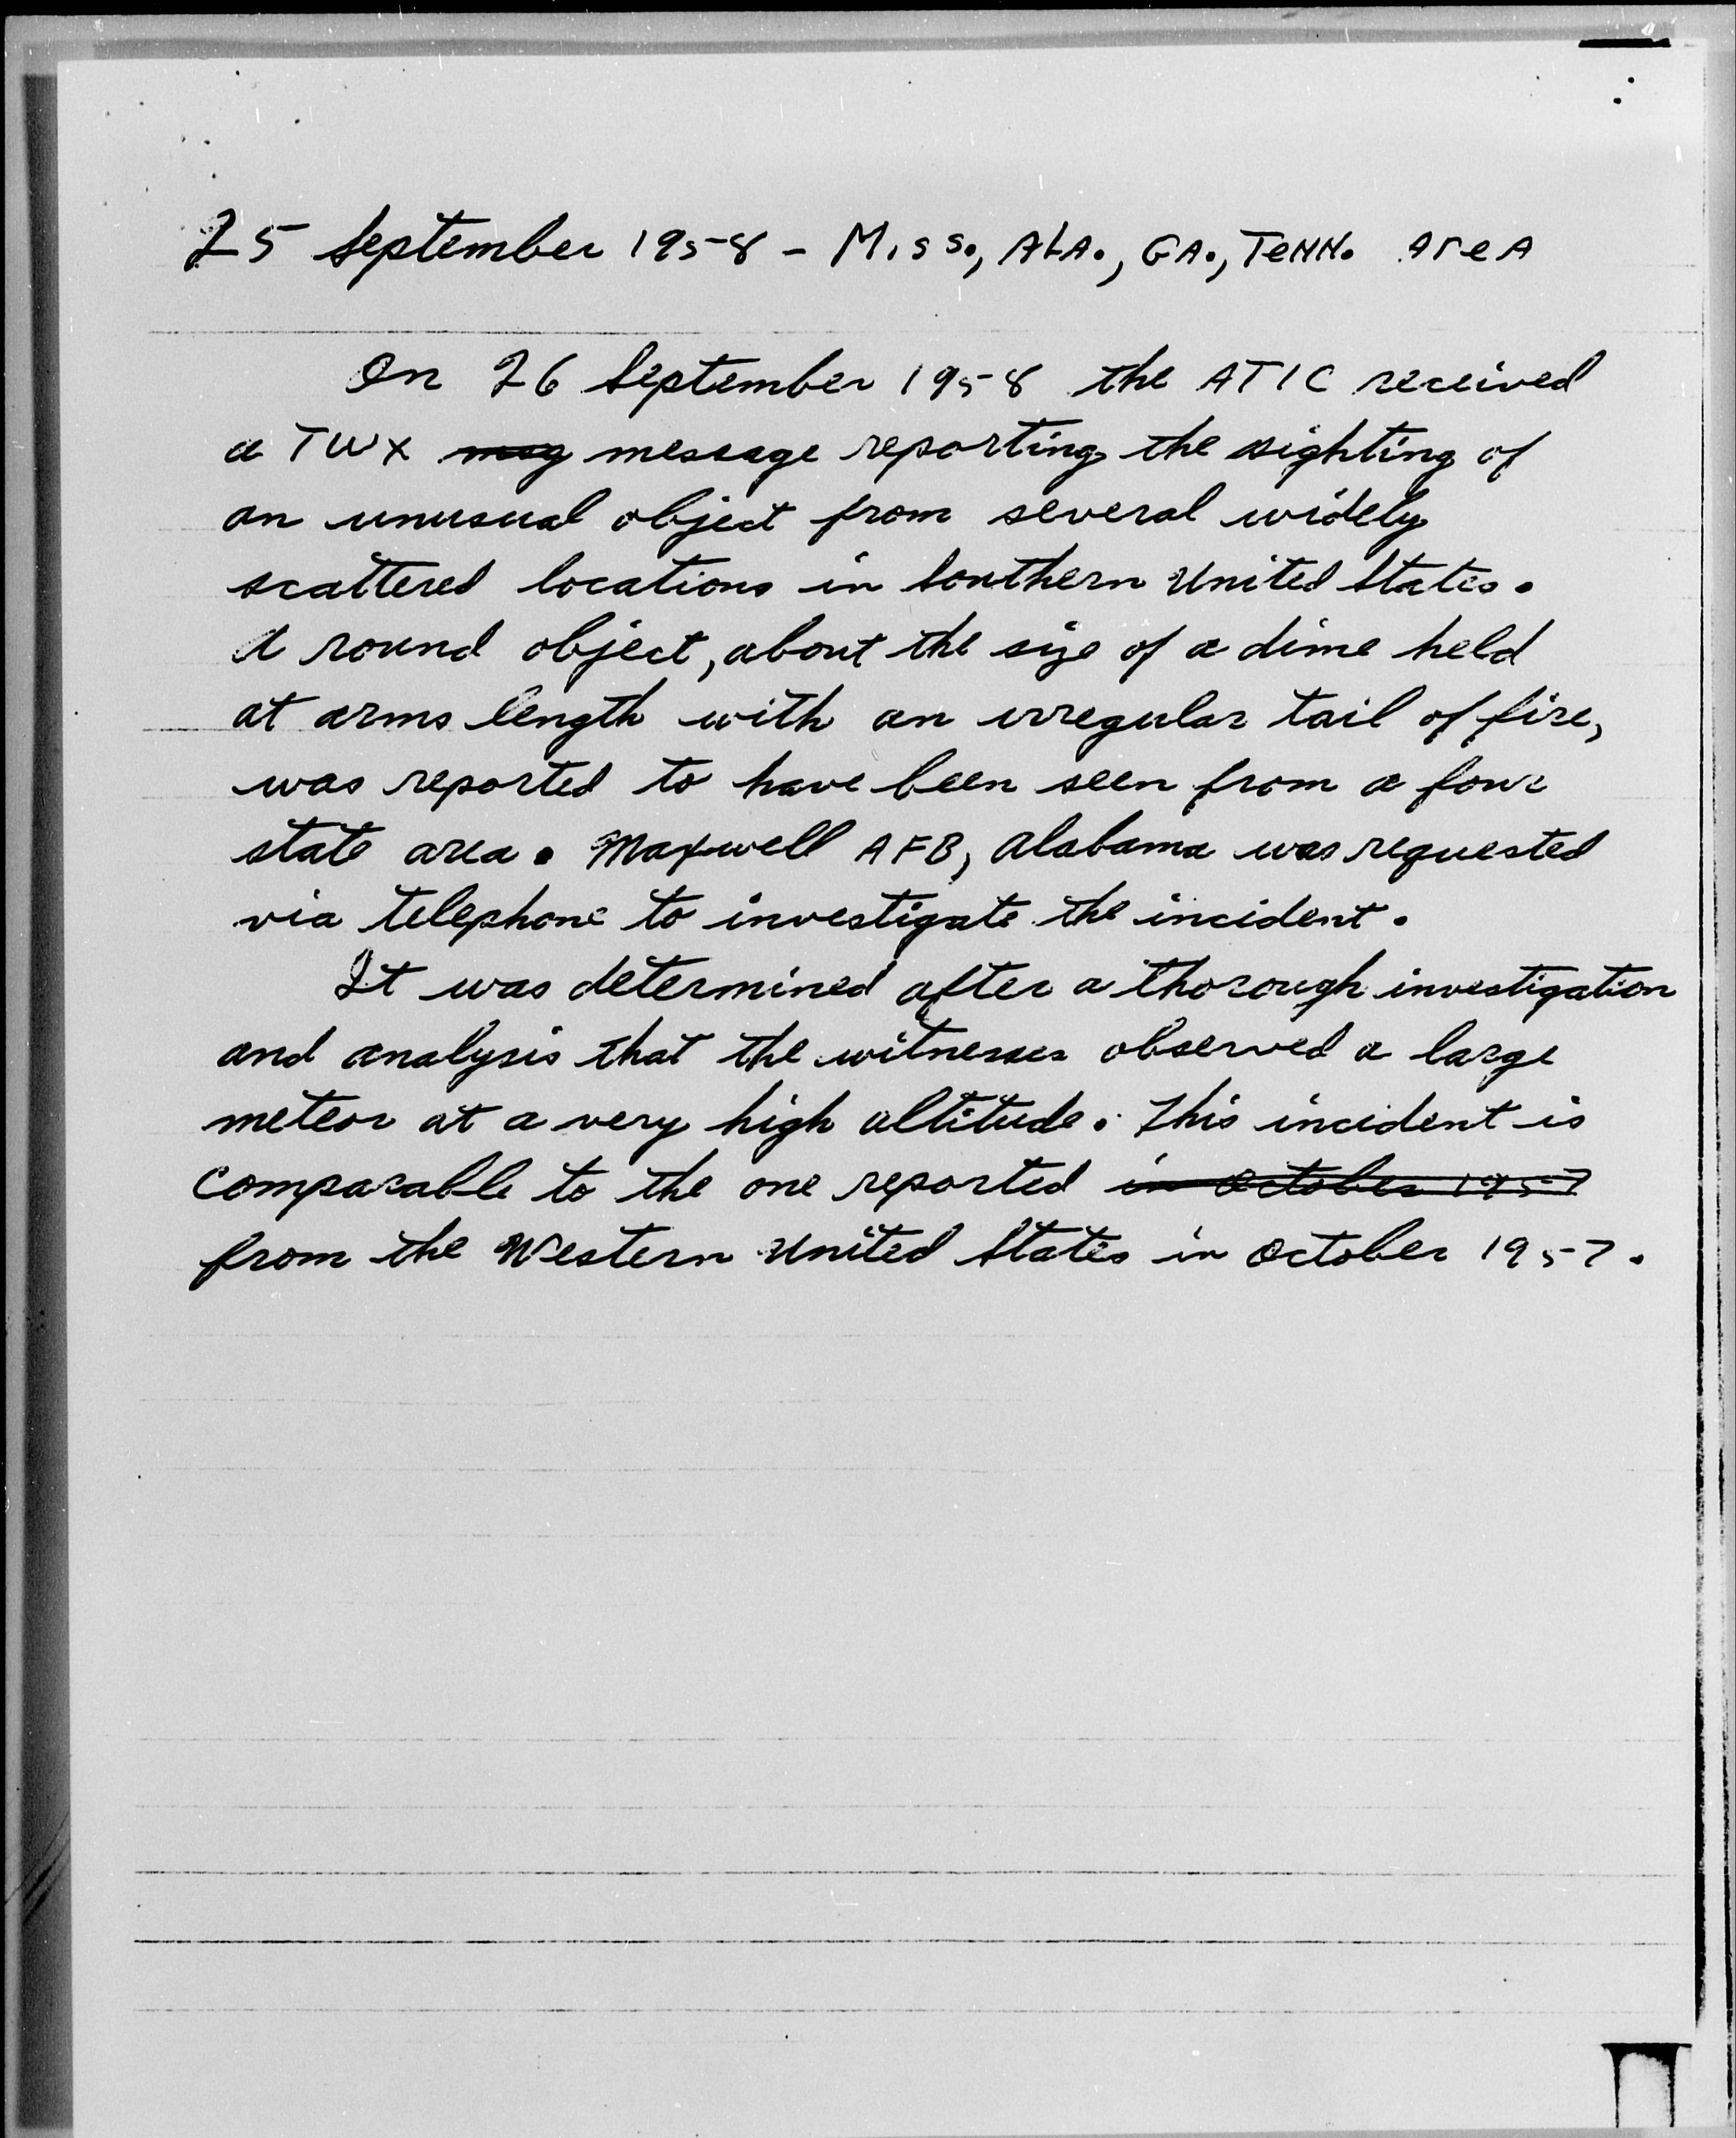 25 September 1958 - Miss., ALA., GA., TeNN. AreA
On 26 September 1958 the ATIC received
a TWX msg message reporting the sighting of
an unusual object from several widely
scattered locations in Southern United States.
A round object, about the size of a dime held
at arms length with an irregular tail of fire,
was reported to have been seen from a four
state area. Maxwell AFB, Alabama was requested
via telephone to investigate the incident.
It was determined after a thorough investigation
and analysis that the witnesses observed a large
meteor at a very high altitude. This incident is
comparable to the one reported in October 1957
from the Western United States in October 1957.